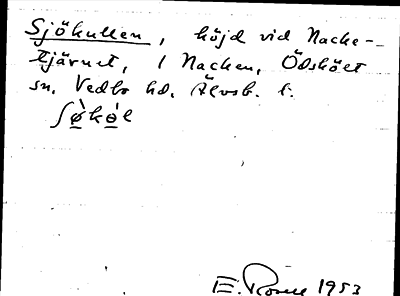 Sjökullen, höjd vid Nacke-
tjärnet, 1 Nacken, Ödskölt
sn. Vedbo hd. Älvsb. l.
ʃø̀kɵ́l
E. Rosell 1953